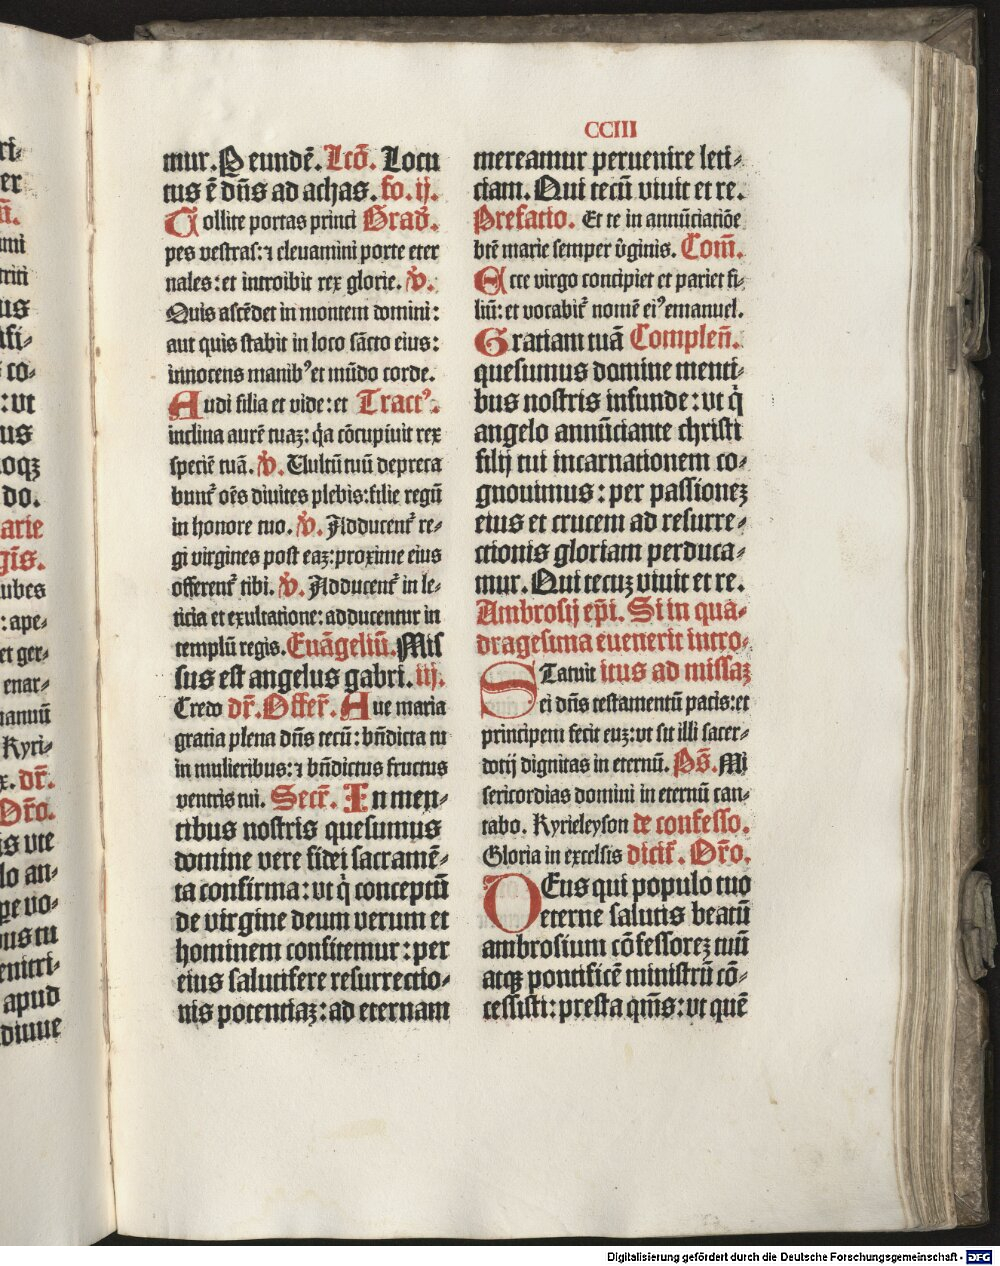 CCIII
mur. P eundē. Lcō. Locu
tus ē dn̄s ad achas. fo. ij.
Tollite portas princi Grad̄.
pes vestras: ⁊ eleuamini porte eter
nales: et introibit rex glorie. v̄.
Quis ascēdet in montem domini:
aut quis stabit in loco sācto eius:
innocens manibꝰ et mūdo corde.
Audi filia et vide: et Tractꝰ.
inclina aurē tuaz: q̄a cōcupiuit rex
speciē tuā. v̄. Uultū tuū depreca
bunt᷑ oēs diuites plebis: filie regū
in honore tuo. v̄. Adducent᷑ re-
gi virgines post eaz: proxime eius
offerent᷑ tibi. v̄. Adducent᷑ in le-
ticia et exultatione: adducentur in
templū regis. Euāgeliū. Mis
sus est angelus gabri. iij.
Credo dr̄. Offer̄. Aue maria
gratia plena dn̄s tecū: bn̄dicta tu
in mulieribus: ⁊ bn̄dictus fructus
ventris tui. Secr̄. In men-
tibus nostris quesumus
domine vere fidei sacramē-
ta confirma: vt q̇ conceptū
de virgine deum verum et
hominem confitemur: per
eius salutifere resurrectio-
nis potentiaz: ad eternam
mereamur peruenire leti-
ciam. Qui tecū viuit et re.
Prefatio. Et te in annūciatiōe
btē marie semper v̄ginis. Com̄.
Ecce virgo concipiet et pariet fi-
liū: et vocabit᷑ nomē eiꝰ emanuel.
Gratiam tuā Complen̄.
quesumus domine menti-
bus nostris infunde: vt q̇
angelo annūciante christi
filij tui incarnationem co-
gnouimus: per passionez
eius et crucem ad resurre-
ctionis gloriam perduca-
mur. Qui tecuz viuit et re.
Ambrosij ep̄i. Si in qua-
dragesima euenerit intro-
Statuit itus ad missaz
ei dn̄s testamentū pacis: et
principem fecit euz: vt sit illi sacer-
dotij dignitas in eternū. Ps̄. Mi
sericordias domini in eternū can-
tabo. Kyrieleyson de confesso.
Gloria in excelsis dicit᷑. Or̄o.
DEus qui populo tuo
eterne salutis beatū
ambrosium cōfessorez tuū
atqꝫ pontificē ministrū cō-
cessisti: presta qm̄s: vt quē
Digitalisierung gefördert durch die Deutsche Forschungsgemeinschaft - DFG